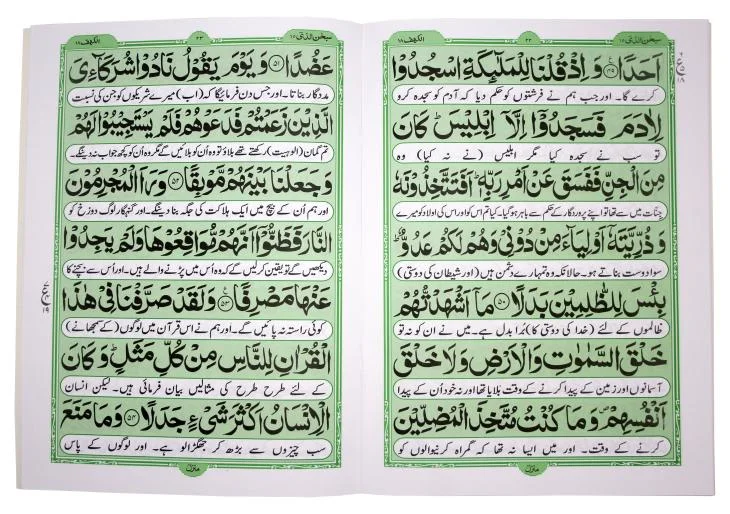 سبحٰن الذی ۱۵
۲۲
الکہف ۱۸
اَحَدًا ﴿۴۹﴾ وَ اِذْ قُلْنَا لِلْمَلٰٓئِكَةِ اسْجُدُوْا
کرے گا۔ اور جب ہم نے فرشتوں کو حکم دیا کہ آدم کو سجدہ کرو
لِاٰدَمَ فَسَجَدُوْۤا اِلَّاۤ اِبْلِیْسَ ؕ كَانَ
تو سب نے سجدہ کیا مگر ابلیس (نے نہ کیا) وہ
مِنَ الْجِنِّ فَفَسَقَ عَنْ اَمْرِ رَبِّهٖ ؕ اَفَتَتَّخِذُوْنَهٗ
جنات میں سے تھا تو اپنے پروردگار کے حکم سے باہر ہو گیا۔ کیا تم اس کو اور اس کی اولاد کو میرے
وَ ذُرِّیَّتَهٗۤ اَوْلِیَآءَ مِنْ دُوْنِیْ وَ هُمْ لَكُمْ عَدُوٌّ ؕ
سوا دوست بناتے ہو۔ حالانکہ وہ تمہارے دشمن ہیں (اور شیطان کی دوستی)
بِئْسَ لِلظّٰلِمِیْنَ بَدَلًا ﴿۵۰﴾ مَاۤ اَشْهَدْتُّهُمْ
ظالموں کے لئے (خدا کی دوستی کا) بُرا بدل ہے۔ میں نے ان کو نہ تو
خَلْقَ السَّمٰوٰتِ وَ الْاَرْضِ وَ لَا خَلْقَ
آسمانوں اور زمین کے پیدا کرنے کے وقت بلایا تھا اور نہ خود اُن کے پیدا
اَنْفُسِهِمْ ۪ وَ مَا كُنْتُ مُتَّخِذَ الْمُضِلِّیْنَ
کرنے کے وقت۔ اور میں ایسا نہ تھا کہ گمراہ کرنیوالوں کو
منزل
سبحٰن الذی ۱۵
۲۳
الکہف ۱۸
عَضُدًا ﴿۵۱﴾ وَ یَوْمَ یَقُوْلُ نَادُوْا شُرَكَآءِیَ
مددگار بناتا۔ اور جس دن فرمائیگا کہ (اب) میرے شریکوں کو جن کی نسبت
الَّذِیْنَ زَعَمْتُمْ فَدَعَوْهُمْ فَلَمْ یَسْتَجِیْبُوْا لَهُمْ
تم گمان (الوہیت) رکھتے تھے بلاؤ تو وہ اُن کو بلائیں گے مگر وہ اُن کو کچھ جواب نہ دینگے۔
وَ جَعَلْنَا بَیْنَهُمْ مَّوْبِقًا ﴿۵۲﴾ وَ رَاَ الْمُجْرِمُوْنَ
اور ہم اُن کے بیچ میں ایک ہلاکت کی جگہ بنا دینگے۔ اور گنہگار لوگ دوزخ کو
النَّارَ فَظَنُّوْۤا اَنَّهُمْ مُّوَاقِعُوْهَا وَ لَمْ یَجِدُوْا
دیکھیں گے تو یقین کر لیں گے کہ وہ اُس میں پڑنے والے ہیں۔ اور اُس سے بچنے کا
عَنْهَا مَصْرِفًا ﴿۵۳﴾ وَ لَقَدْ صَرَّفْنَا فِیْ هٰذَا
کوئی راستہ نہ پائیں گے۔ اور ہم نے اس قرآن میں لوگوں (کے سمجھانے)
الْقُرْاٰنِ لِلنَّاسِ مِنْ كُلِّ مَثَلٍ ؕ وَ كَانَ
کے لئے طرح طرح کی مثالیں بیان فرمائی ہیں۔ لیکن انسان
الْاِنْسَانُ اَكْثَرَ شَیْءٍ جَدَلًا ﴿۵۴﴾ وَ مَا مَنَعَ
سب چیزوں سے بڑھ کر جھگڑالو ہے۔ اور لوگوں کے پاس
منزل